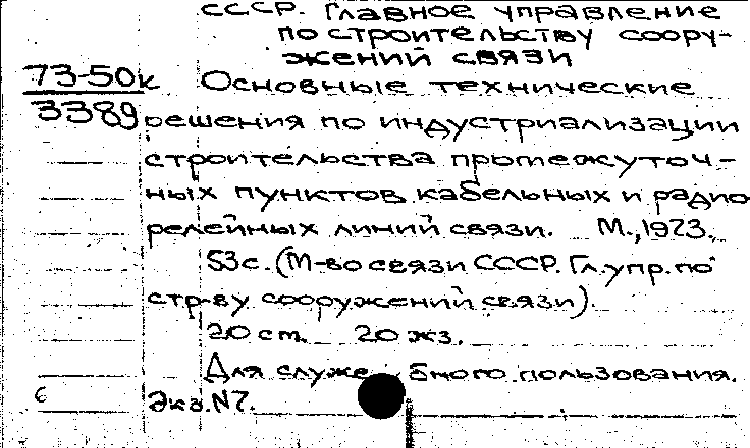 СССР. Главное управление
по строительству соору-
жений связи
73-50к Основные технические
3389 решения по индустриализации
строительства промежуточ-
ных пунктов кабельных и радио
релейных линий связи. М., 1973.
53 с. (М-во связи СССР. Гл. упр. по
стр-ву сооружений связи).
20 см. 20 экз.
Для служебного пользования.
Экз. N7.